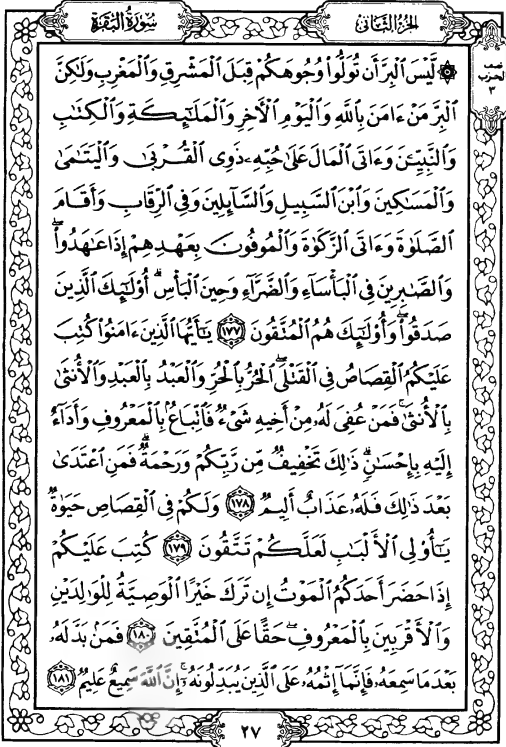 سُورَةُ البَقَرَةِ
الجُزْءُ الثَّانِي
نصف
الحزب
٣
۞ لَّيْسَ ٱلْبِرَّ أَن تُوَلُّوا۟ وُجُوهَكُمْ قِبَلَ ٱلْمَشْرِقِ وَٱلْمَغْرِبِ وَلَٰكِنَّ
ٱلْبِرَّ مَنْ ءَامَنَ بِٱللَّهِ وَٱلْيَوْمِ ٱلْءَاخِرِ وَٱلْمَلَٰٓئِكَةِ وَٱلْكِتَٰبِ
وَٱلنَّبِيِّۦنَ وَءَاتَى ٱلْمَالَ عَلَىٰ حُبِّهِۦ ذَوِى ٱلْقُرْبَىٰ وَٱلْيَتَٰمَىٰ
وَٱلْمَسَٰكِينَ وَٱبْنَ ٱلسَّبِيلِ وَٱلسَّآئِلِينَ وَفِى ٱلرِّقَابِ وَأَقَامَ
ٱلصَّلَوٰةَ وَءَاتَى ٱلزَّكَوٰةَ وَٱلْمُوفُونَ بِعَهْدِهِمْ إِذَا عَٰهَدُوا۟ۖ
وَٱلصَّٰبِرِينَ فِى ٱلْبَأْسَآءِ وَٱلضَّرَّآءِ وَحِينَ ٱلْبَأْسِۗ أُو۟لَٰٓئِكَ ٱلَّذِينَ
صَدَقُوا۟ۖ وَأُو۟لَٰٓئِكَ هُمُ ٱلْمُتَّقُونَ ١٧٧ يَٰٓأَيُّهَا ٱلَّذِينَ ءَامَنُوا۟ كُتِبَ
عَلَيْكُمُ ٱلْقِصَاصُ فِى ٱلْقَتْلَىۖ ٱلْحُرُّ بِٱلْحُرِّ وَٱلْعَبْدُ بِٱلْعَبْدِ وَٱلْأُنثَىٰ
بِٱلْأُنثَىٰۚ فَمَنْ عُفِىَ لَهُۥ مِنْ أَخِيهِ شَىْءٌ فَٱتِّبَاعٌۢ بِٱلْمَعْرُوفِ وَأَدَآءٌ
إِلَيْهِ بِإِحْسَٰنٍۗ ذَٰلِكَ تَخْفِيفٌ مِّن رَّبِّكُمْ وَرَحْمَةٌۗ فَمَنِ ٱعْتَدَىٰ
بَعْدَ ذَٰلِكَ فَلَهُۥ عَذَابٌ أَلِيمٌ ١٧٨ وَلَكُمْ فِى ٱلْقِصَاصِ حَيَوٰةٌ
يَٰٓأُو۟لِى ٱلْأَلْبَٰبِ لَعَلَّكُمْ تَتَّقُونَ ١٧٩ كُتِبَ عَلَيْكُمْ
إِذَا حَضَرَ أَحَدَكُمُ ٱلْمَوْتُ إِن تَرَكَ خَيْرًا ٱلْوَصِيَّةُ لِلْوَٰلِدَيْنِ
وَٱلْأَقْرَبِينَ بِٱلْمَعْرُوفِۖ حَقًّا عَلَى ٱلْمُتَّقِينَ ١٨٠ فَمَنۢ بَدَّلَهُۥ
بَعْدَ مَا سَمِعَهُۥ فَإِنَّمَآ إِثْمُهُۥ عَلَى ٱلَّذِينَ يُبَدِّلُونَهُۥٓۚ إِنَّ ٱللَّهَ سَمِيعٌ عَلِيمٌ ١٨١
٢٧